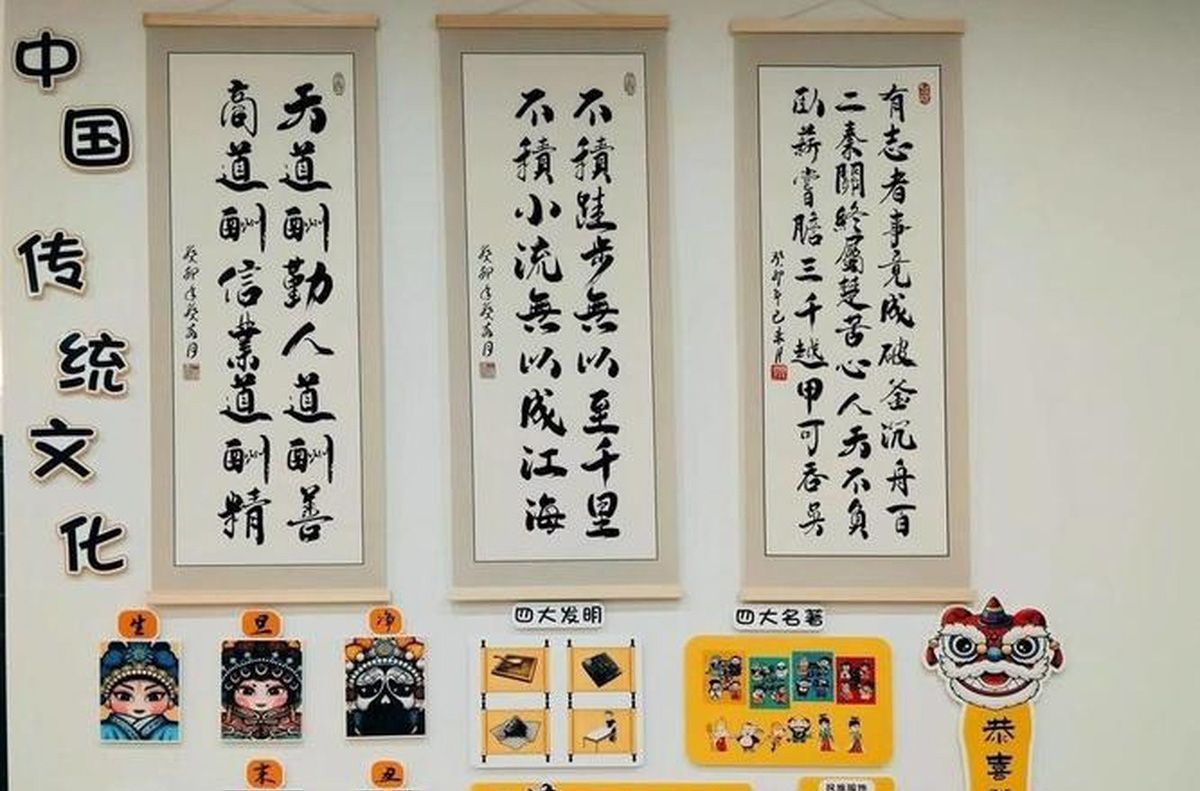 中国传统文化
天道酬勤人道酬善
商道酬信業道酬精
癸卯年癸亥月
不積跬步無以至千里
不積小流無以成江海
癸卯年癸亥月
有志者事竟成破釜沉舟百
二秦關終屬楚苦心人天不負
臥薪嘗膽三千越甲可吞吳
癸卯年己未月
生
旦
净
末
丑
四大发明
四大名著
恭喜